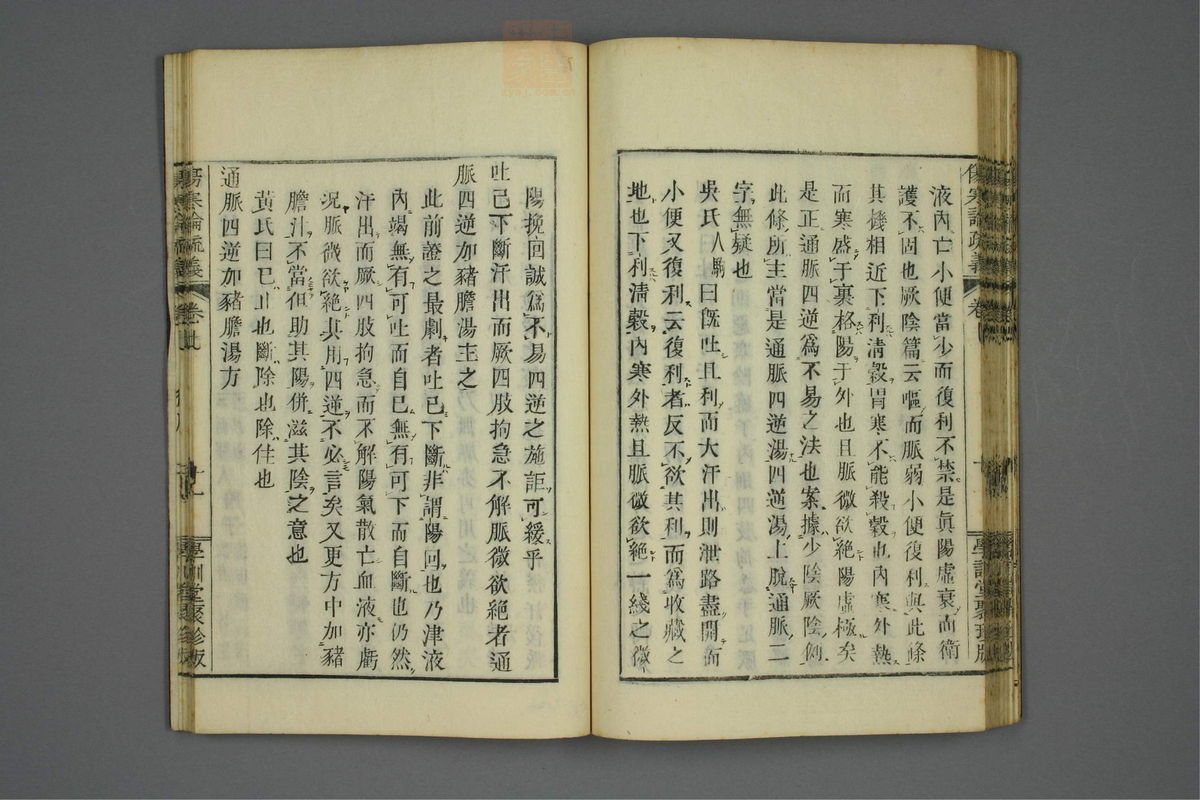 液內亡小便當少而復利不禁是眞陽虛衰而衛
護不固也厥陰篇云嘔而脈弱小便復利與此條
其機相近下利淸穀胃寒不能殺穀也內寒外熱
而寒盛于裏格陽于外也且脈微欲絕陽虛極矣
是正通脈四逆爲不易之法也案據少陰厥陰例
此條所主當是通脈四逆湯四逆湯上脫通脈二
字無疑也
吳氏人駒曰旣吐且利而大汗出則泄路盡開而
小便又復利云復利者反不欲其利而爲收藏之
地也下利淸穀內寒外熱且脈微欲絕一綫之微
陽挽回誠爲不易四逆之施詎可緩乎
吐已下斷汗出而厥四肢拘急不解脈微欲絕者通
脈四逆加豬膽湯主之
此前證之最劇者吐已下斷非謂陽回也乃津液
內竭無有可吐而自已無有可下而自斷也仍然
汗出而厥四肢拘急而不解陽氣散亡血液亦虧
況脈微欲絕其用四逆不必言矣又更方中加豬
膽汁不當但助其陽併滋其陰之意也
黃氏曰已止也斷除也除住也
通脈四逆加豬膽湯方
傷寒論疏義
學訓堂聚珍版